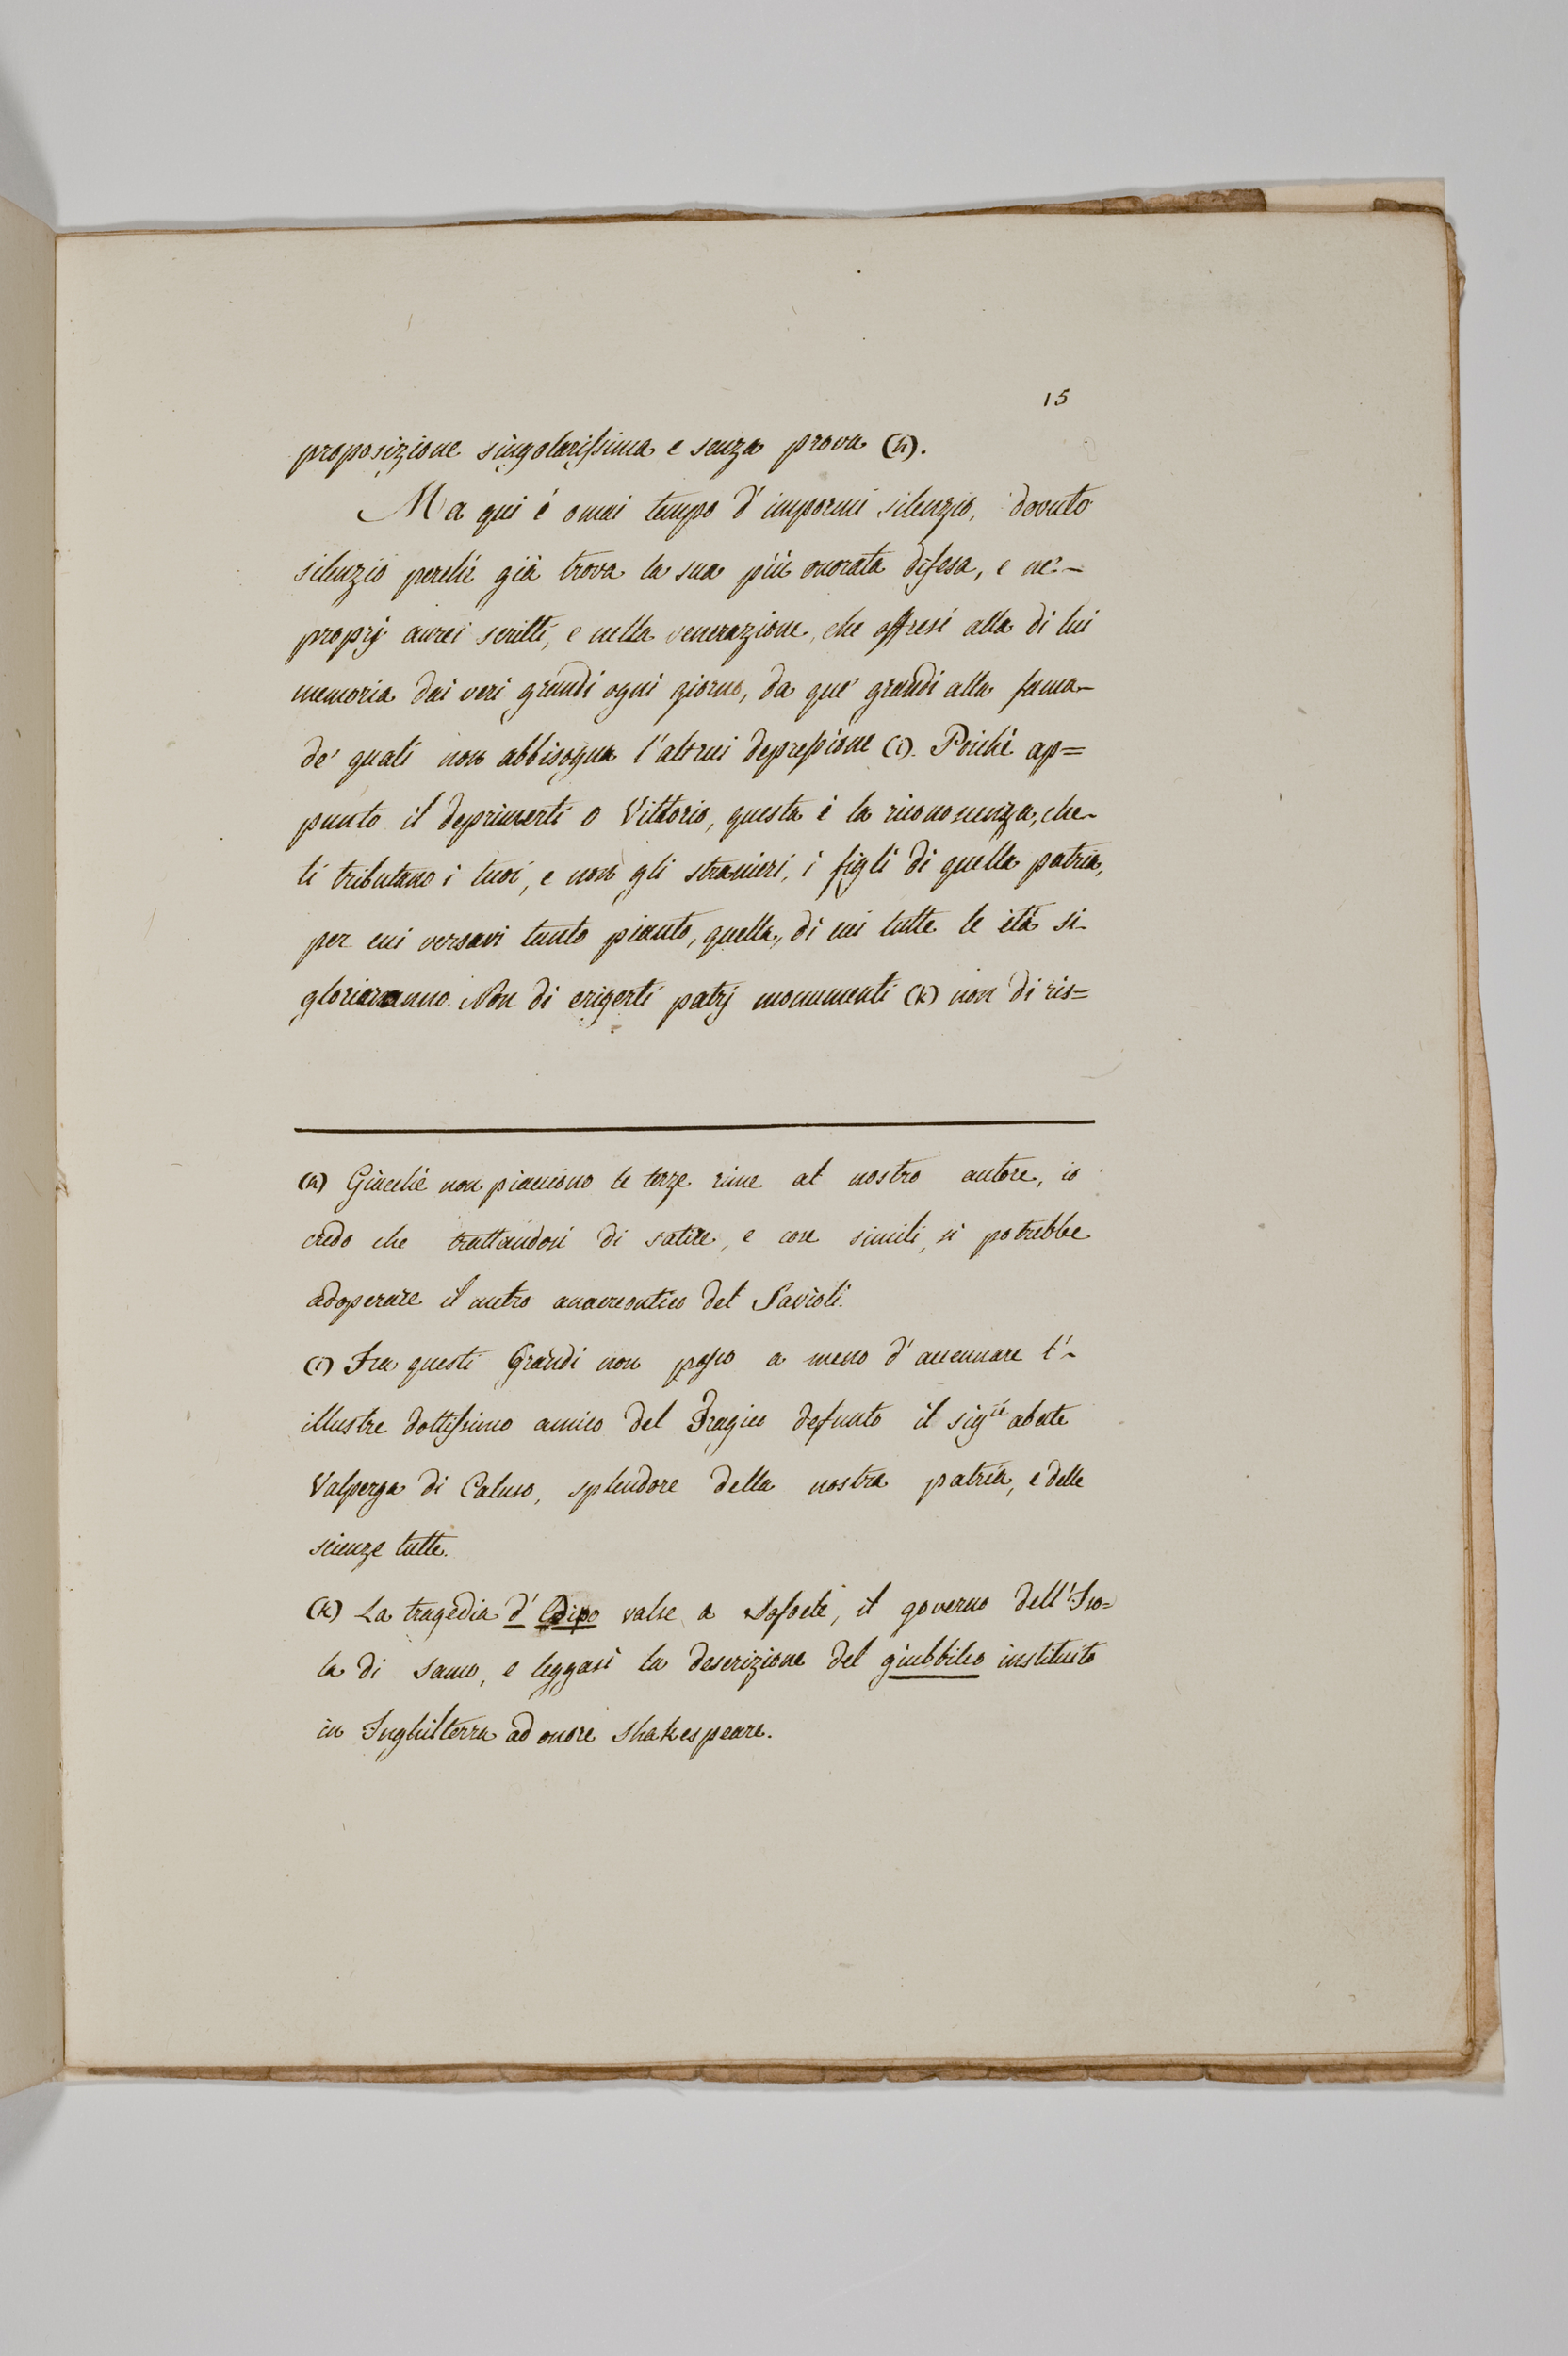 15
proposizione singolarissima e senza prova (h).
Ma qui è omai tempo d'impormi silenzio, dovuto
silenzio perchè già trova la sua più onorata difesa, e ne'-
proprj aurei scritti, e nella venerazione, che offresi alla di lui
memoria dai veri grandi ogni giorno, da que' grandi alla fama-
de' quali non abbisogna l'altrui depressione (i). Poichè ap=
punto il deprimerti o Vittorio, questa è la riconoscenza, che-
ti tributano i tuoi, e non gli stranieri, i figli di quella patria,
per cui versavi tanto pianto, quella, di cui tutte le età si-
glorieranno. Non di erigerti patrj monumenti (k) non di ris=
(h) Giacchè non piacciono le terze rime al nostro autore, io
credo che trattandosi di satire, e cose simili, si potrebbe
adoperare il metro anacreontico del Savioli.
(i) Fra questi Grandi non posso a meno d'accennare l'-
illustre dottissimo amico del Tragico defunto il sig.re abate
Valperga di Caluso, splendore della nostra patria, e delle
scienze tutte.
(k) La tragedia d'Edipo valse a Sofocle, il governo dell'Iso=
la di Samo, e leggasi la descrizione del giubbileo instituito
in Inghilterra ad onore Shakespeare.